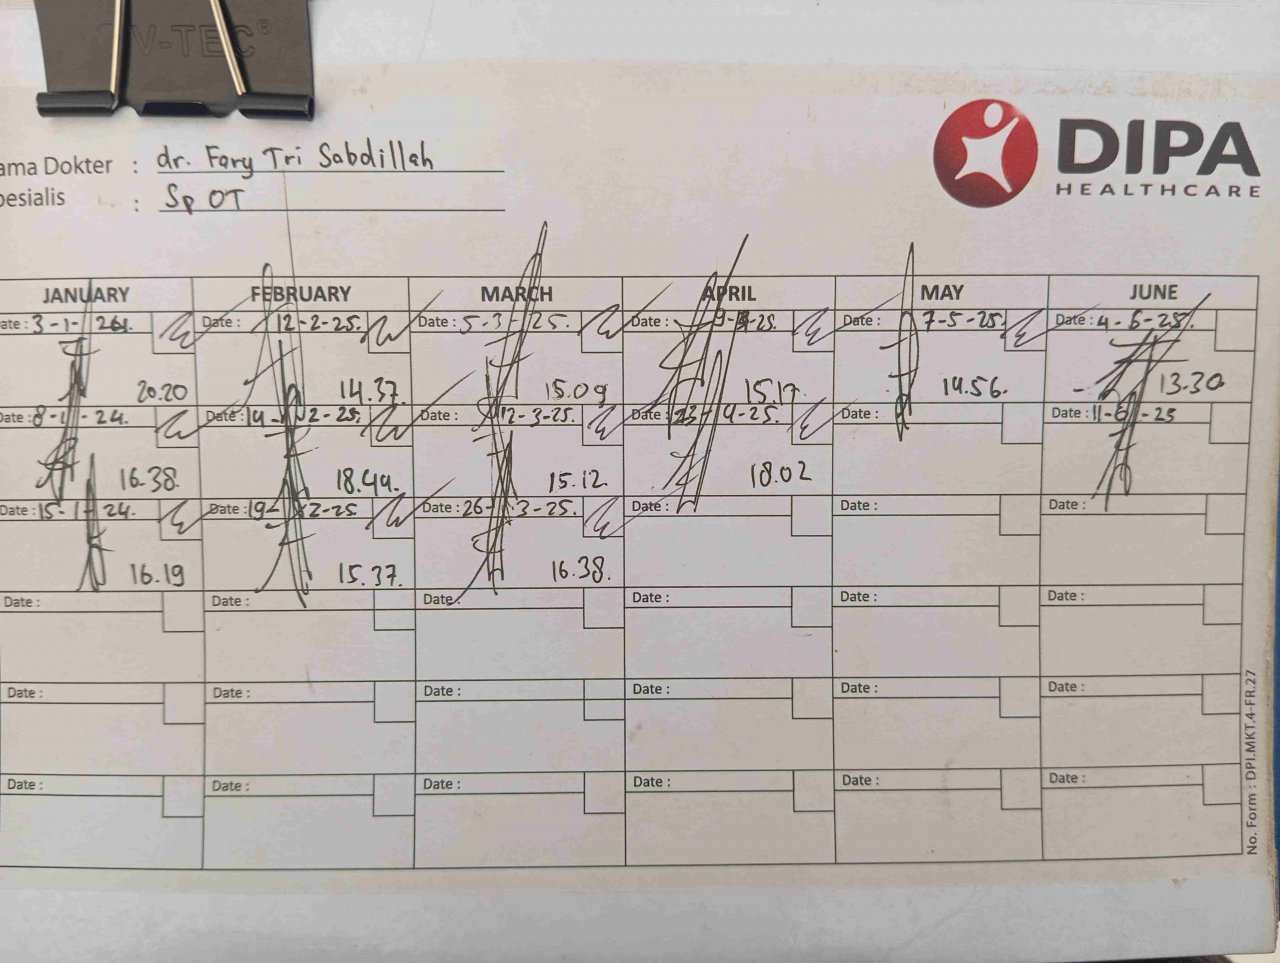 V-TEC®
ama Dokter : dr. Fary Tri Sabdillah
pesialis : Sp OT
DIPA
HEALTHCARE
JANUARY FEBRUARY MARCH APRIL MAY JUNE
ate : 3-1- Date : 12-2-25. Date : 5-3-25. Date : 9- -25. Date : 7-5-25. Date : 4-6-25.
20.20 14.37. 15.09 15.17. 14.56. 13.30
Date : 8-1-24. Date : 14-2-25. Date : 12-3-25. Date : 23-4-25. Date : Date : 11-6-25
16.38. 18.44. 15.12 18.02
Date : 15-1-24. Date : 19-2-25 Date : 26-3-25. Date : Date : Date :
16.19 15.37. 16.38.
Date : Date : Date : Date : Date : Date :
Date : Date : Date : Date : Date : Date :
Date : Date : Date : Date : Date : Date :
No. Form : DPI.MKT.4-FR.27